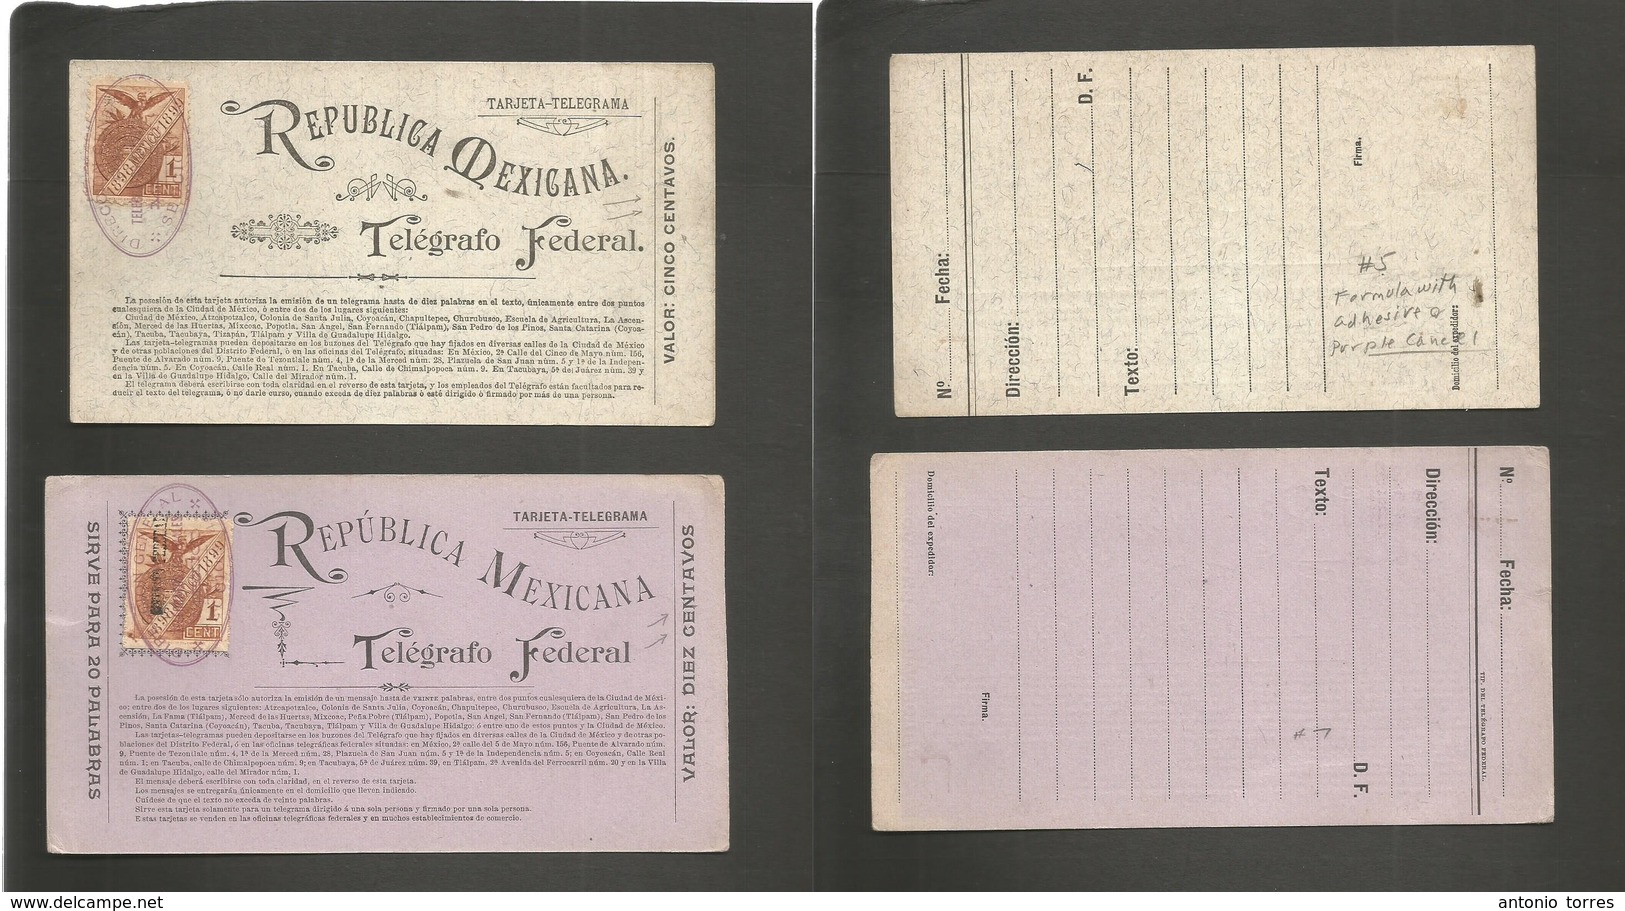 TARJETA-TELEGRAMA
REPUBLICA MEXICANA.
Telégrafo Federal.
VALOR: CINCO CENTAVOS.
1 CENT
La posesión de esta tarjeta autoriza la emisión de un telegrama hasta de diez palabras en el texto, únicamente entre dos puntos
cualesquiera de la Ciudad de México, ó entre dos de los lugares siguientes:
Ciudad de México, Atzcapotzalco, Colonia de Santa Julia, Coyoacán, Chapultepec, Churubusco, Escuela de Agricultura, La Ascen-
sión, Merced de las Huertas, Mixcoac, Popotla, San Angel, San Fernando (Tlálpam), San Pedro de los Pinos, Santa Catarina (Coyoa-
cán), Tacuba, Tacubaya, Tizapán, Tlálpam y Villa de Guadalupe Hidalgo.
Las tarjetas-telegramas pueden depositarse en los buzones del Telégrafo que hay fijados en diversas calles de la Ciudad de México
y de otras poblaciones del Distrito Federal, ó en las oficinas del Telégrafo, situadas: En México, 2ª Calle del Cinco de Mayo núm. 156,
Puente de Alvarado núm. 9, Puente de Tezontlale núm. 4, 1ª de la Merced núm. 28, Plazuela de San Juan núm. 5 y 1ª de la Indepen-
dencia núm. 5. En Coyoacán, Calle Real núm. 1. En Tacuba, Calle de Chimalpopoca núm. 9. En Tacubaya, 5ª de Juárez núm. 39 y
en la Villa de Guadalupe Hidalgo, Calle del Mirador núm. 1.
El telegrama deberá escribirse con toda claridad en el reverso de esta tarjeta, y los empleados del Telégrafo están facultados para re-
ducir el texto del telegrama, ó no darle curso, cuando exceda de diez palabras ó esté dirigido ó firmado por más de una persona.
Nº Fecha:
Dirección: D. F.
Texto:
Firma.
Domicilio del expedidor:
#5
Formula with
adhesive &
purple Cancel
SIRVE PARA 20 PALABRAS
TARJETA-TELEGRAMA
REPÚBLICA MEXICANA
Telégrafo Federal
VALOR: DIEZ CENTAVOS
1 CENT
La posesión de esta tarjeta sólo autoriza la emisión de un mensaje hasta de VEINTE palabras, entre dos puntos cualesquiera de la Ciudad de Méxi-
co; entre dos de los lugares siguientes: Atzcapotzalco, Colonia de Santa Julia, Coyoacán, Chapultepec, Churubusco, Escuela de Agricultura, La As-
censión, La Fama (Tlálpam), Merced de las Huertas, Mixcoac, Peña Pobre (Tlálpam), Popotla, San Angel, San Fernando (Tlálpam), San Pedro de los
Pinos, Santa Catarina (Coyoacán), Tacuba, Tacubaya, Tlálpam y Villa de Guadalupe Hidalgo; ó entre uno de estos puntos y la Ciudad de México.
Las tarjetas-telegramas pueden depositarse en los buzones del Telégrafo que hay fijados en diversas calles de la Ciudad de México y de otras po-
blaciones del Distrito Federal, ó en las oficinas telegráficas federales situadas: en México, 2ª calle del 5 de Mayo núm. 156, Puente de Alvarado núm.
9, Puente de Tezontlale núm. 4, 1ª de la Merced núm. 28, Plazuela de San Juan núm. 5 y 1ª de la Independencia núm. 5; en Coyoacán, Calle Real
núm. 1; en Tacuba, calle de Chimalpopoca núm. 9; en Tacubaya, 5ª de Juárez núm. 39, en Tlálpam, 2ª Avenida del Ferrocarril núm. 20 y en la Villa
de Guadalupe Hidalgo, calle del Mirador núm. 1.
El mensaje deberá escribirse con toda claridad, en el reverso de esta tarjeta.
Los mensajes se entregarán únicamente en el domicilio que lleven indicado.
Cuídese de que el texto no exceda de veinte palabras.
Sirve esta tarjeta solamente para un telegrama dirigido á una sola persona y firmado por una sola persona.
Estas tarjetas se venden en las oficinas telegráficas federales y en muchos establecimientos de comercio.
Nº Fecha:
Dirección:
D. F.
Texto:
Firma.
Domicilio del expedidor:
TIP. DEL TELÉGRAFO FEDERAL.
#7
antonio torres